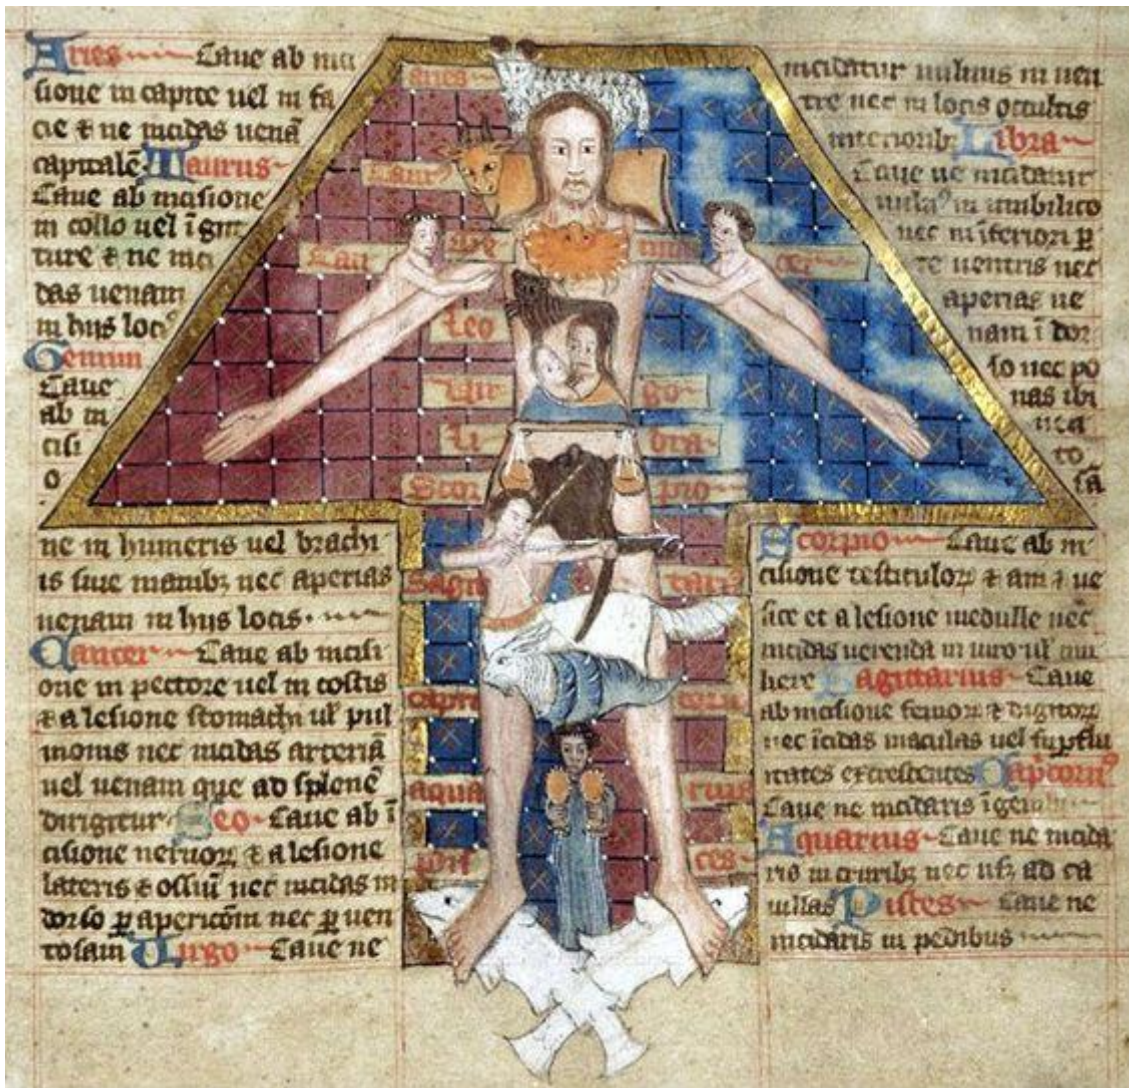 Aries Caue ab inci
sione in capite uel in fa
cie & ne incidas uenā
capitalē Taurus
Caue ab incisione
in collo uel ī gut
ture & ne inci
das uenam
in hiis locꝰ
Gemini
Caue
ab in
cisi
o
ne in humeris uel brachi
is siue manibꝫ nec aperias
uenam in hiis locis.
Cancer Caue ab incisi
one in pectore uel in costis
& a lesione stomachi ul̄ pul
monis nec incidas arteriā
uel uenam que ad splenē
dirigitur. Leo Caue ab ī
cisione neruoꝝ & a lesione
lateris & ossiū nec incidas in
dorso ꝑ apericōm nec ꝑ uen
tosam Uirgo Caue ne
aries
taurꝰ
Gē mi
Can cer
leo
Uir go
li bra
Scor pio
Sagit tariꝰ
capri cornꝰ
aqua rius
pis ces
incidatur uulnus in uen
tre nec in locis occultis
interioribꝫ Libra
Caue ne incidatur
uulnꝰ in umbilico
nec in īferiori ꝑ
te uentris nec
aperias ue
nam ī dor
so nec po
nas ibi
uen
to
sā
Scorpio Caue ab in
cisione testiculoꝝ & ani & ue
sice et a lesione medulle nec
incidas uerenda in uiro ul̄ mu
liere Sagittarius Caue
ab incisione femoꝝ & digitoꝝ
nec īcidas maculas uel suꝑflu
itates excrescentes Capicornꝰ
Caue ne incidaris ī genibꝫ
Aquarius Caue ne incida
ris in cruribꝫ nec usqꝫ ad ca
uillas Pisces Caue ne
incidaris in pedibus